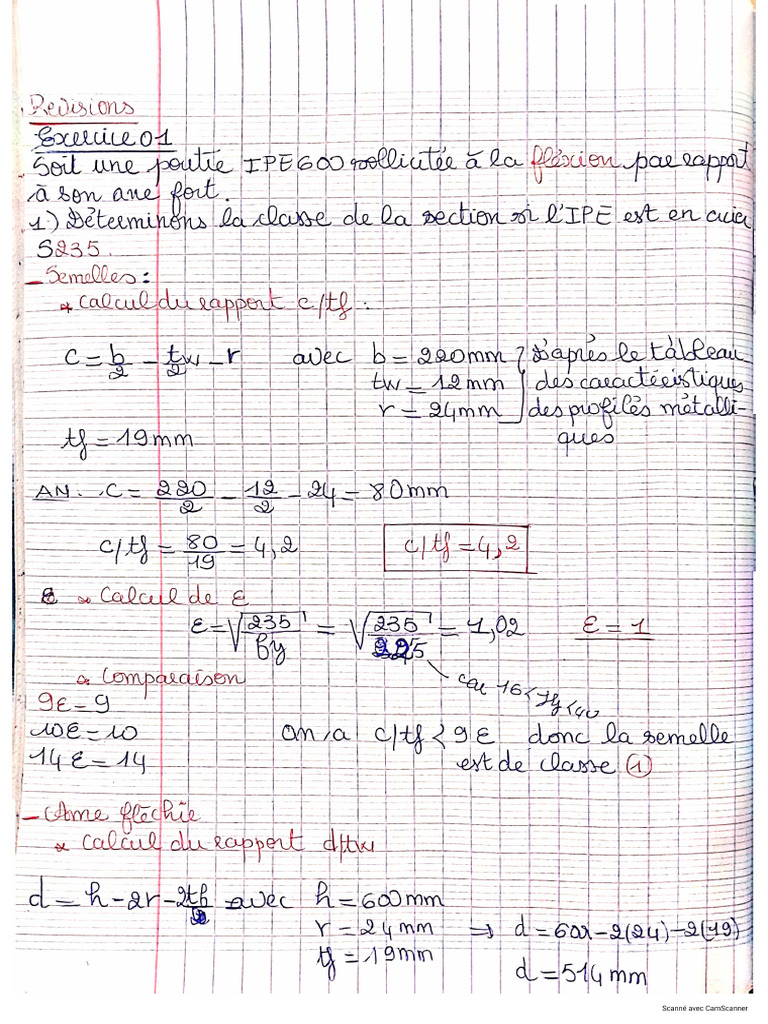 Revisions
Exercice 01
Soit une poutre IPE600 sollicitée à la fléxion par rapport
à son axe fort.
1) Déterminons la classe de la section si l'IPE est en acier
S235.
- Semelles :
* Calcul du rapport c/tf :
c = b/2 - tw/2 - r avec b = 220mm } D'après le tableau
tw = 12mm des caractéristiques
r = 24mm des profilés métalli-
tf = 19mm ques
AN : c = 220/2 - 12/2 - 24 = 80mm
c/tf = 80/19 = 4,2 c/tf = 4,2
* Calcul de ε
ε = √235/fy = √235/225 = 1,02 ε = 1
* Comparaison car 16 < tf < 40
9ε = 9
10ε = 10 On a c/tf < 9ε donc la semelle
14ε = 14 est de classe 1
- Ame fléchie
* Calcul du rapport d/tw
d = h - 2r - 2tf avec h = 600mm
r = 24mm ⇒ d = 600 - 2(24) - 2(19)
tf = 19mm
d = 514mm
Scanné avec CamScanner